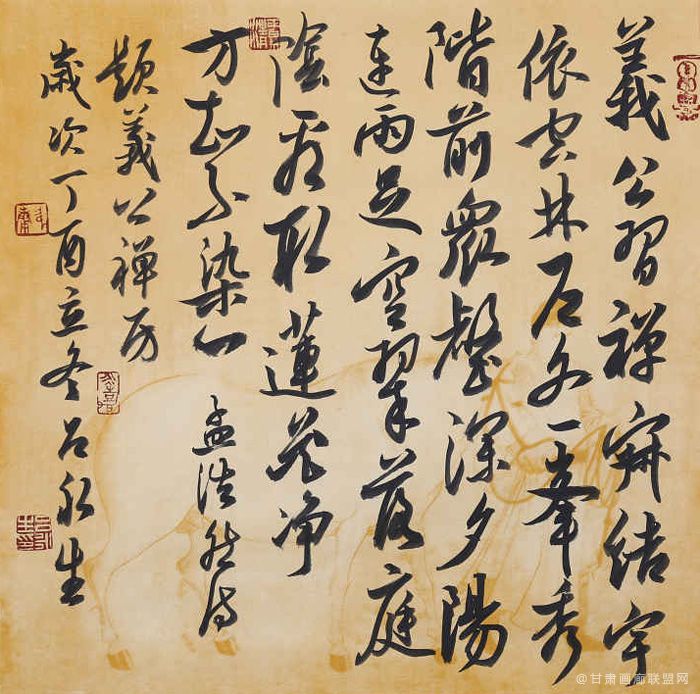 義公習禅寂結宇
依空林戶外一峯秀
階前眾壑深夕陽
連雨足空翠落庭
陰看取蓮花净
方知不染心 孟浩然詩
題義公禅房
歲次丁酉立冬呂永生
@甘肃画廊联盟网